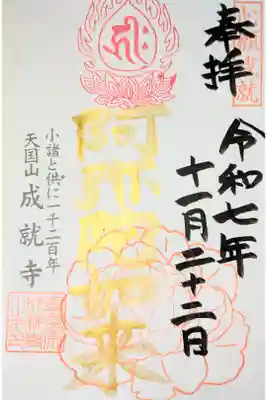 奉拝
令和七年
十一月二十二日
阿弥陀如来
小諸と供に一千二百年
天国山 成就寺